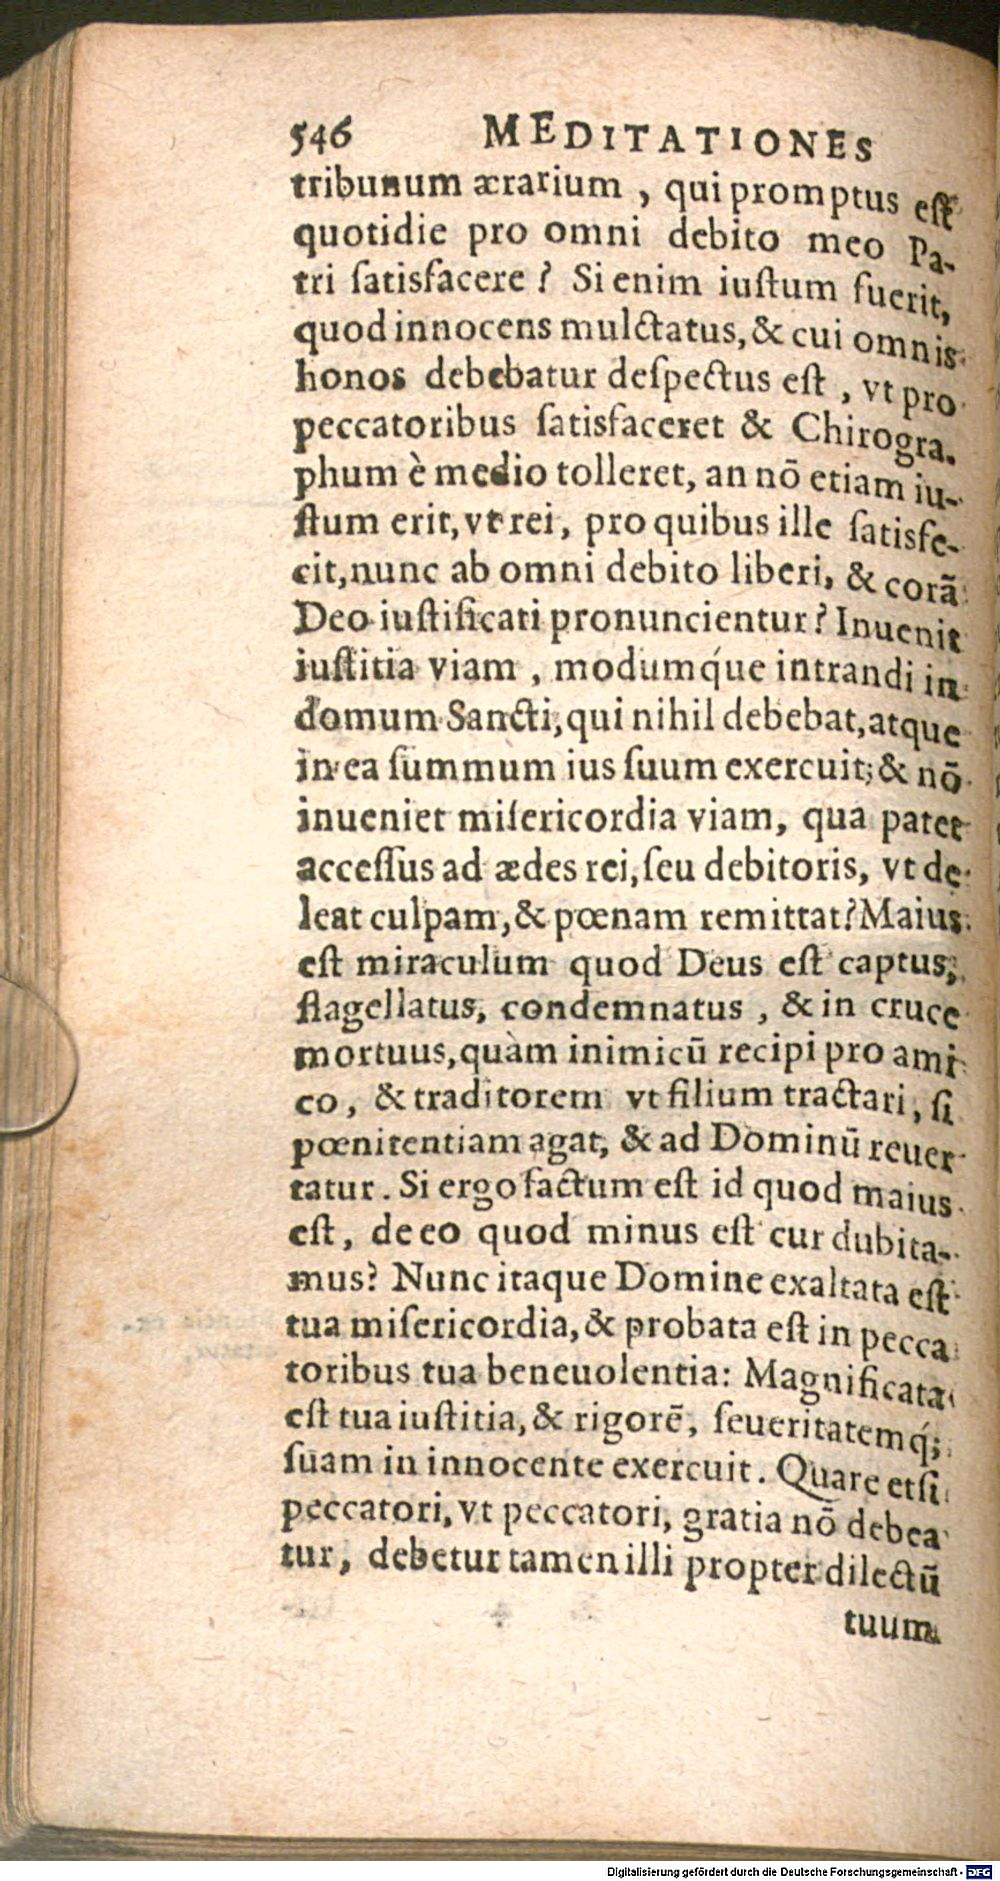 546 MEDITATIONES
tribunum ærarium , qui promptus eſt
quotidie pro omni debito meo Pa-
tri ſatisfacere ? Si enim iuſtum fuerit,
quod innocens mulctatus, & cui omnis
honos debebatur deſpectus eſt , vt pro
peccatoribus ſatisfaceret & Chirogra-
phum è medio tolleret, an nō etiam iu-
ſtum erit, vt rei, pro quibus ille ſatisfe-
cit, nunc ab omni debito liberi, & corā
Deo iuſtificati pronuncientur? Inuenit
iuſtitia viam , modumq́ue intrandi in
domum Sancti, qui nihil debebat, atque
in ea ſummum ius ſuum exercuit; & nō
inueniet miſericordia viam, qua patet
acceſſus ad ædes rei, ſeu debitoris, vt de-
leat culpam, & pœnam remittat? Maius
eſt miraculum quod Deus eſt captus,
flagellatus, condemnatus , & in cruce
mortuus, quàm inimicū recipi pro ami-
co, & traditorem vt filium tractari, ſi
pœnitentiam agat, & ad Dominū reuer-
tatur. Si ergo factum eſt id quod maius
eſt, de eo quod minus eſt cur dubita-
mus? Nunc itaque Domine exaltata eſt
tua miſericordia, & probata eſt in pecca
toribus tua beneuolentia: Magnificata
eſt tua iuſtitia, & rigorē, ſeueritatemq́;
ſuam in innocente exercuit. Quare etſi
peccatori, vt peccatori, gratia nō debea
tur, debetur tamen illi propter dilectū
tuum
Digitalisierung gefördert durch die Deutsche Forschungsgemeinschaft - DFG